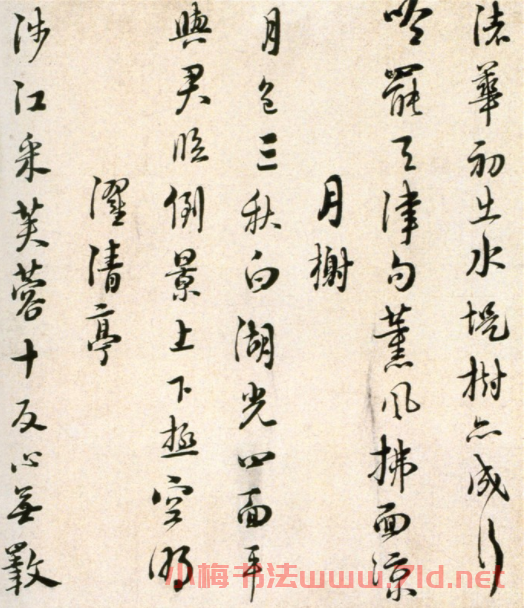 渚華初出水堤樹亦成行
吟罷天津句薰風拂面涼
月榭
月色三秋白湖光四面平
與君臨倒景上下極空明
濯清亭
涉江采芙蓉十反心無斁
小梅书法www.7ld.net